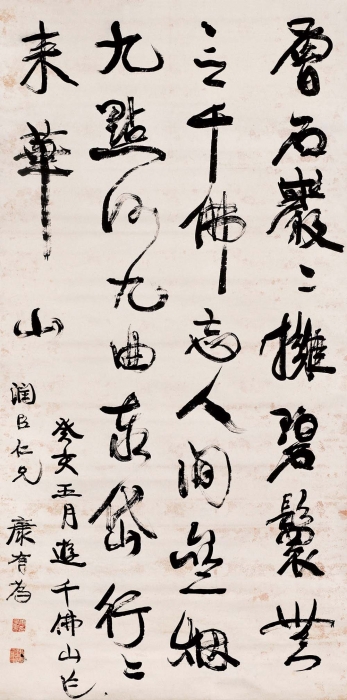 層石巖〻擁碧鬟無
言千佛忘人間齊烟
九點河九曲泰岱行〻
來華山
癸亥五月遊千佛山作
潤臣仁兄 康有為